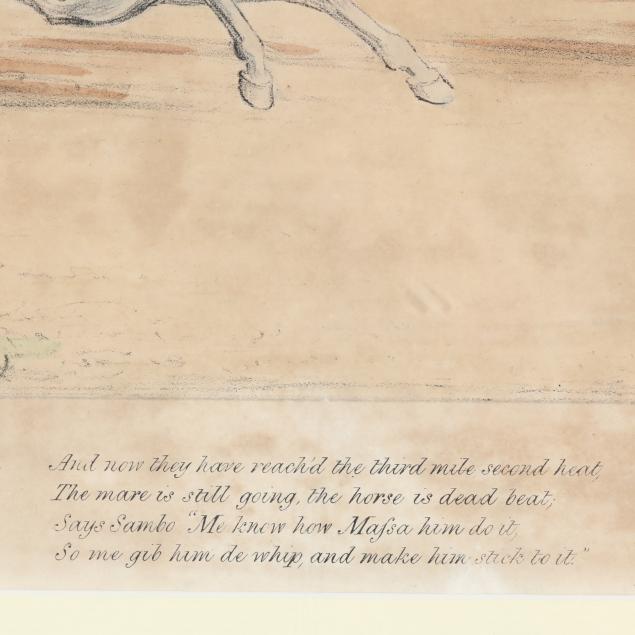 And now they have reach'd the third mile second heat,
The mare is still going, the horse is dead beat;
Says Sambo "Me know how Maſsa him do it,
So me gib him de whip, and make him stick to it."